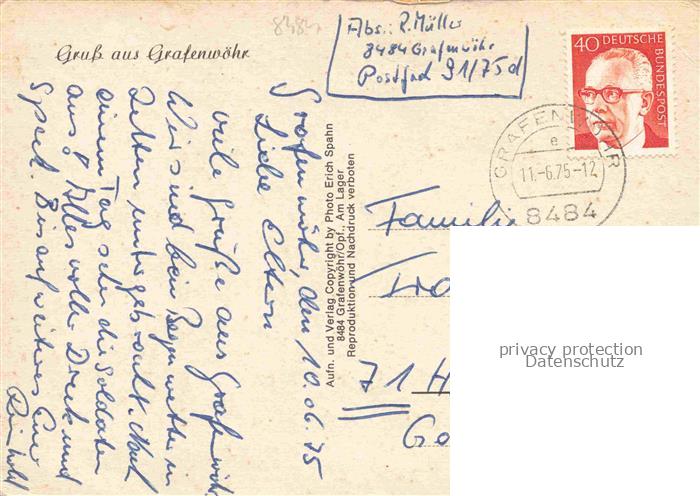 8484
Gruß aus Grafenwöhr
Abs.: R. Müller
8484 Grafenwöhr
Postfach 91/75 d
40 DEUTSCHE
BUNDESPOST
GRAFENWÖHR
e
11.-6.75-12
8484
Grafenwöhr, den 10.06.75
Liebe Eltern
viele Grüße aus Grafenwöhr.
Wir sind bei Regenwetter in
Zelten untergebracht. Nach
einem Tag sehen die Soldaten
aus! Alles voller Dreck und
Speck. Bis auf weiteres Euer
Reinhold
Aufn. und Verlag Copyright by Photo Erich Spahn
8484 Grafenwöhr/Opf., Am Lager
Reproduktion und Nachdruck verboten
Familie
71 H
privacy protection
Datenschutz